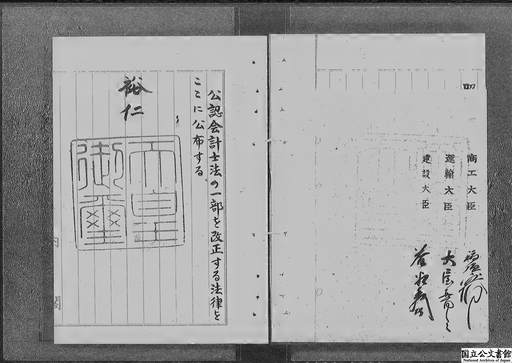 商工大臣
運輸大臣
建設大臣
公認会計士法の一部を改正する法律を
ここに公布する
裕仁
天皇
御璽
内閣
国立公文書館
National Archives of Japan